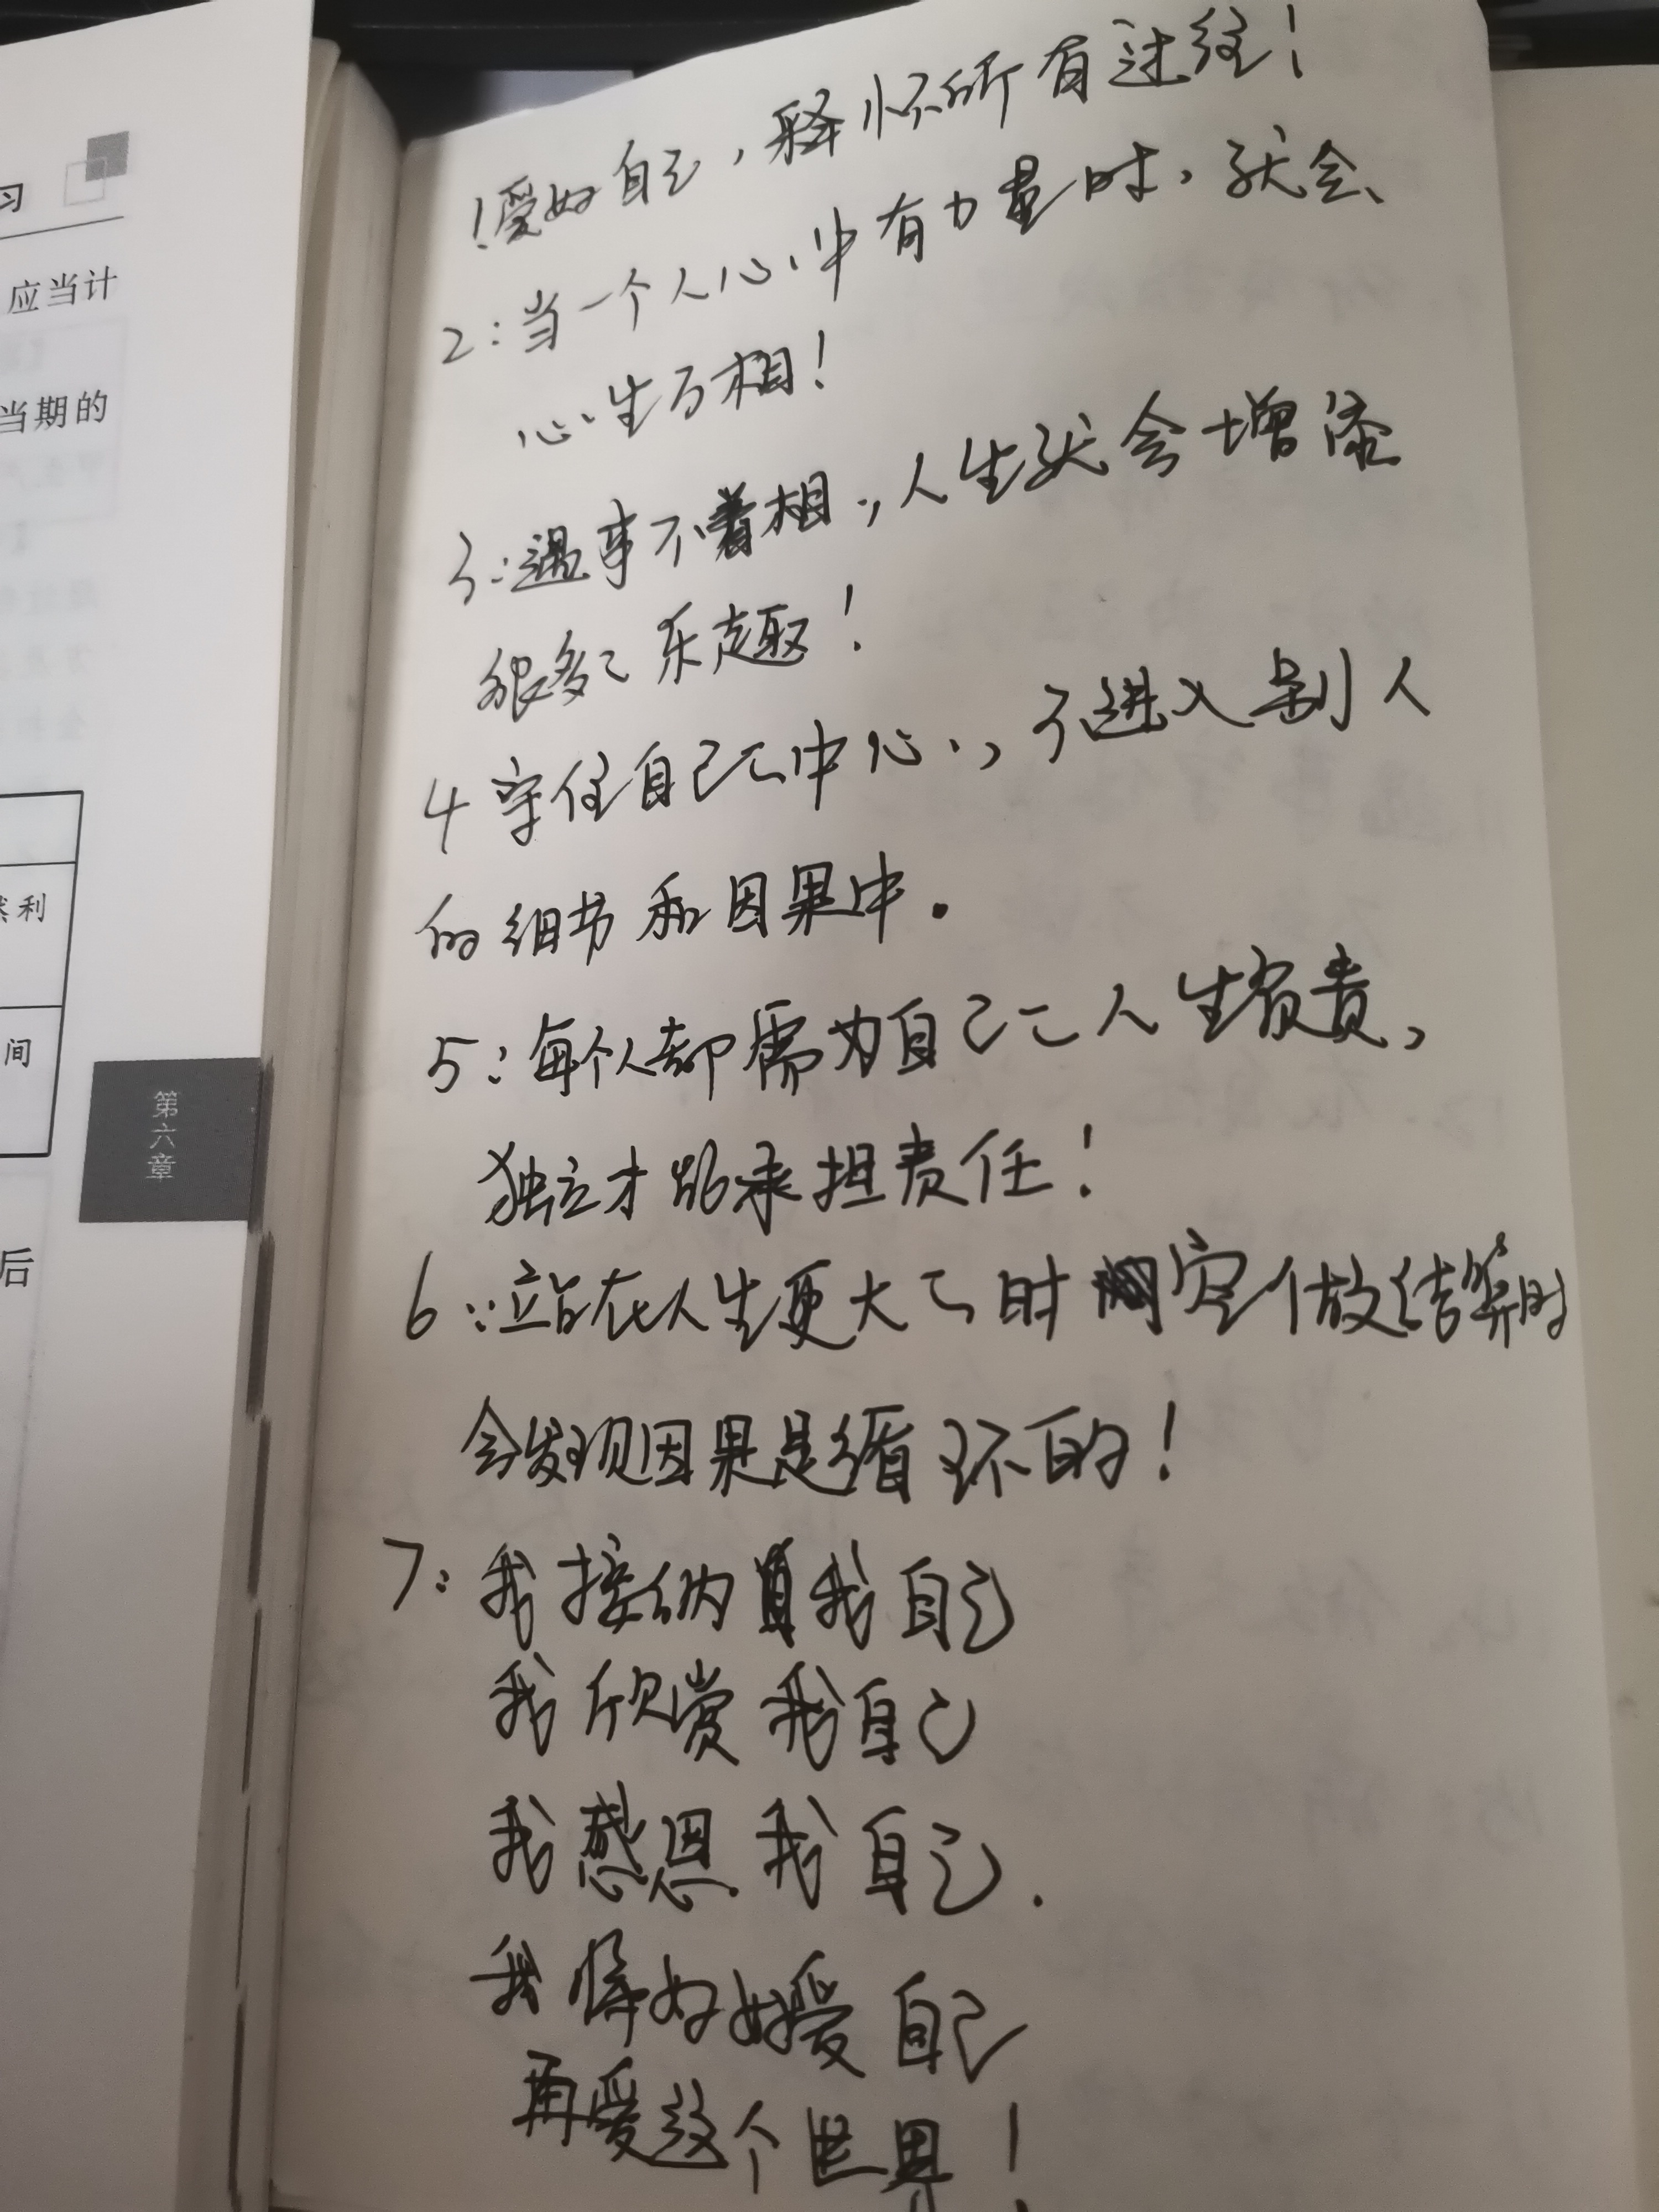 习
应当计
当期的
利
间
第六章
后
1爱好自己，释怀所有过往！
2：当一个人心中有力量时，就会
心生万相！
3：遇事不着相，人生就会增添
很多乐趣！
4 守住自己的中心，不进入别人
的细节和因果中。
5：每个人都需为自己的人生负责，
独立才能承担责任！
6：站在人生更大的时空做结算时
会发现因果是循环的！
7：我接纳真我自己
我欣赏我自己
我感恩我自己．
我将好好爱自己
再爱这个世界！